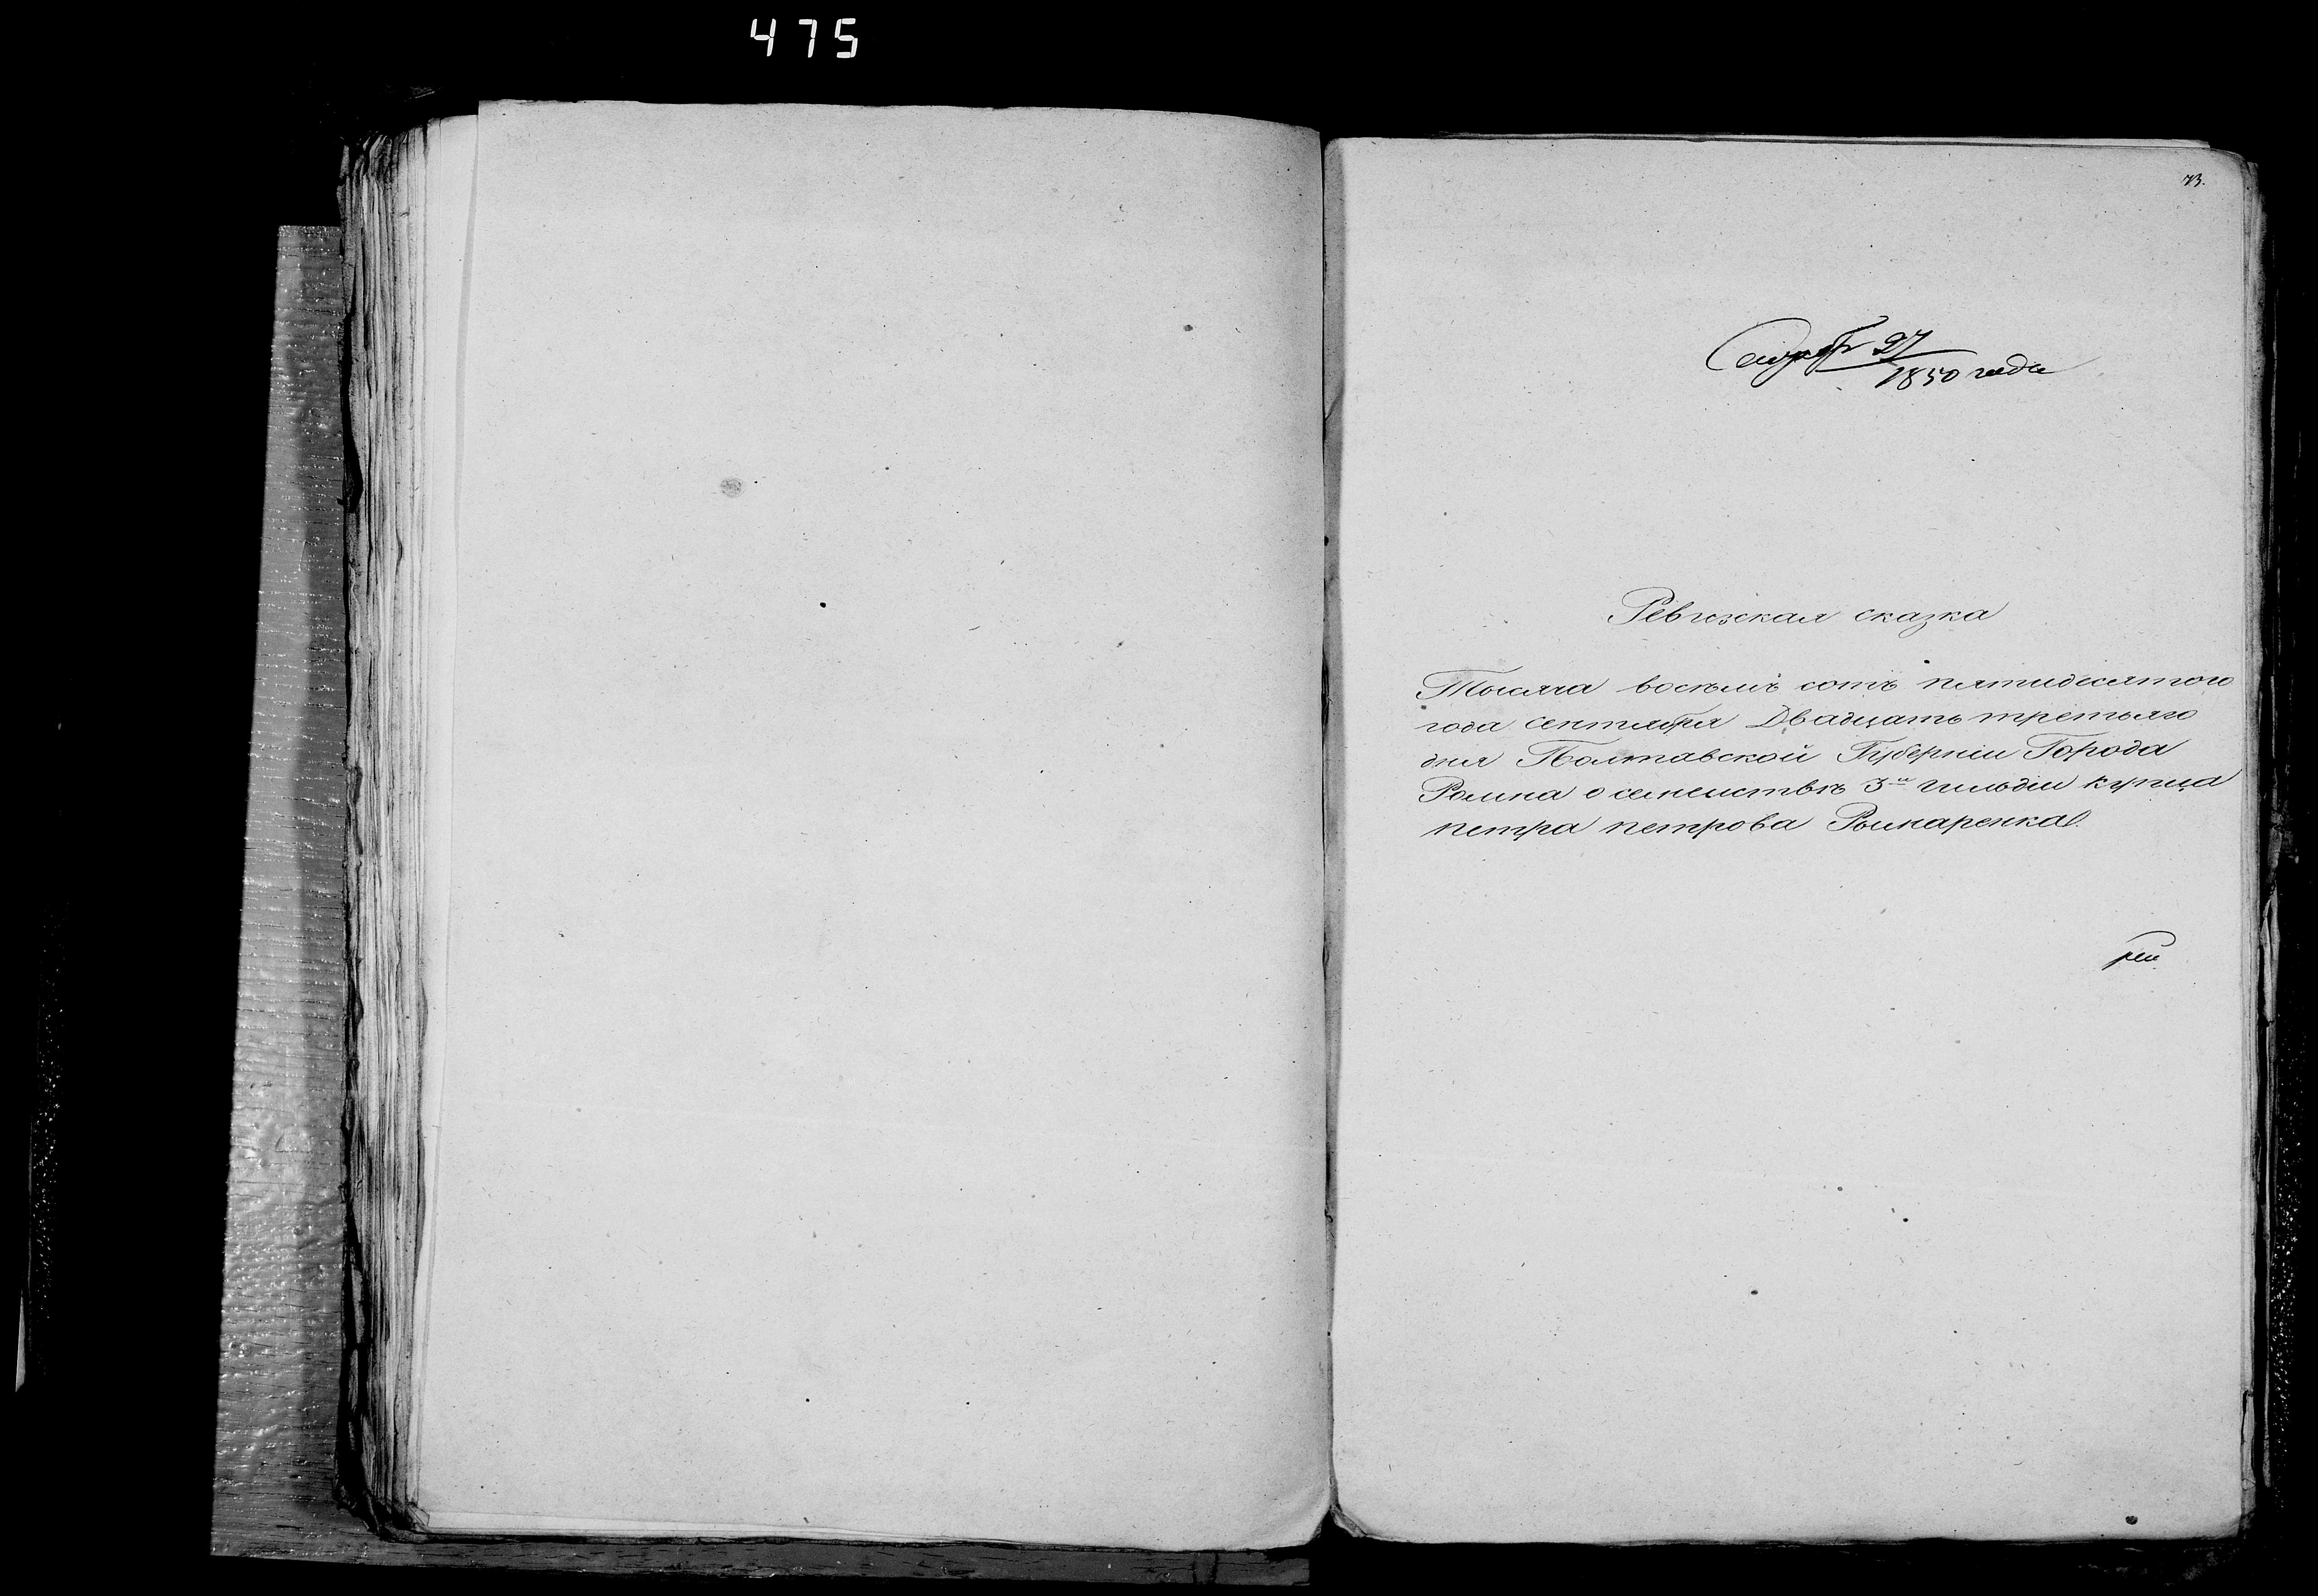 475
73.
Сентября 27
1850 года
Ревизская сказка
Тысяча восемъ сотъ пятидесятого
года сентября Двадцать третьяго
дня Полтавской Губерніи Города
Ромна о семействѣ 3й гильдіи купца
петра петрова Рымаренка